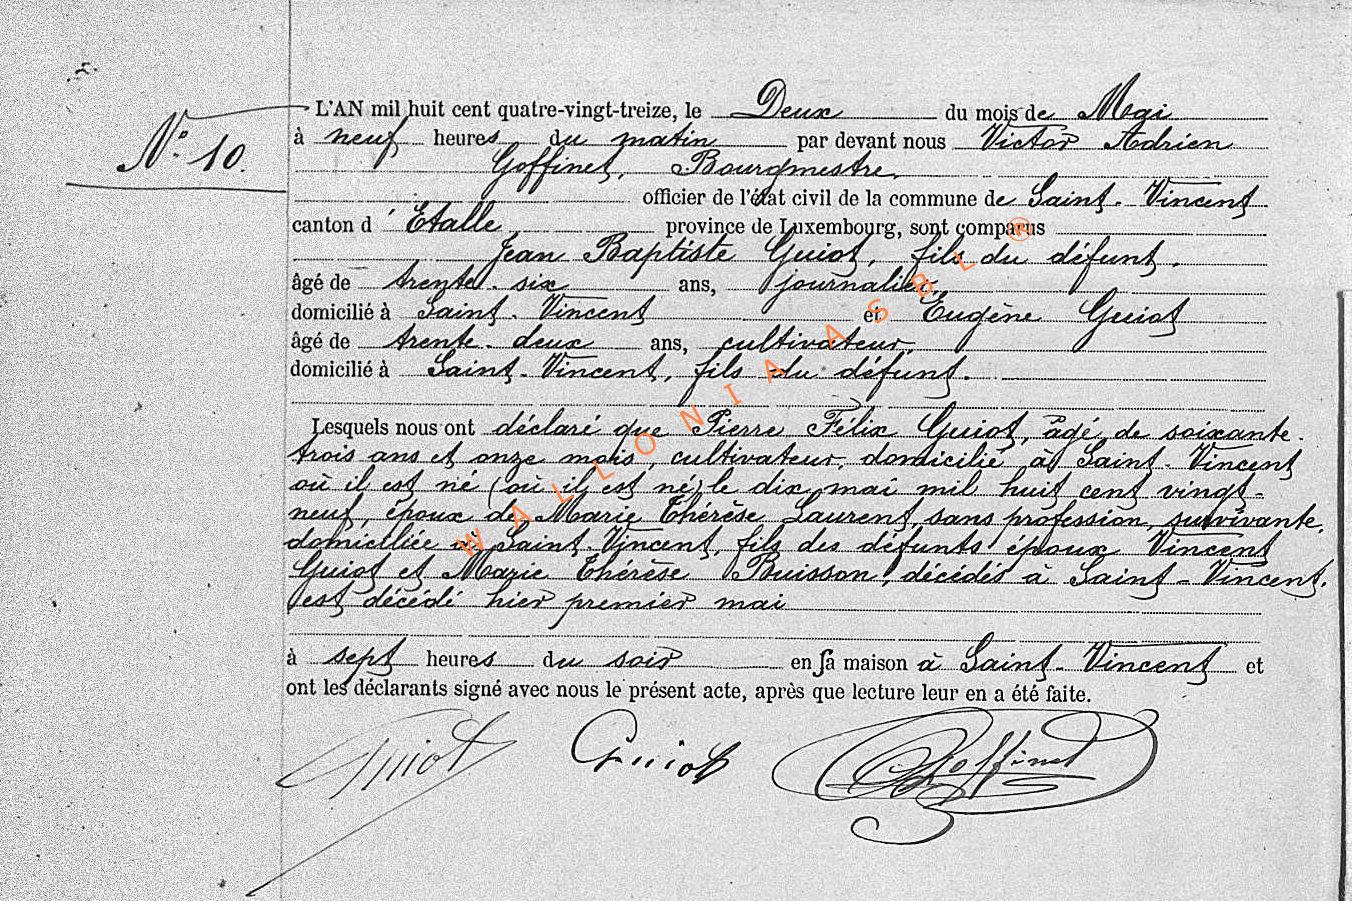 N° 10.
L'AN mil huit cent quatre-vingt-treize, le Deux du mois de Mai
à neuf heures du matin par devant nous Victor Adrien
Goffinet, Bourgmestre,
officier de l'état civil de la commune de Saint-Vincent
canton d'Etalle, province de Luxembourg, sont comparus
Jean Baptiste Guiot, fils du défunt,
âgé de trente-six ans, journalier,
domicilié à Saint-Vincent et Eugène Guiot
âgé de trente-deux ans, cultivateur,
domicilié à Saint-Vincent, fils du défunt.
Lesquels nous ont déclaré que Pierre Félix Guiot, âgé de soixante-
trois ans et onze mois, cultivateur, domicilié à Saint-Vincent
où il est né (où il est né) le dix mai mil huit cent vingt-
neuf, époux de Marie Thérèse Laurent, sans profession, survivante,
domiciliée à Saint-Vincent, fils des défunts époux Vincent
Guiot et Marie Thérèse Buisson, décédés à Saint-Vincent.
est décédé hier premier mai
à sept heures du soir en sa maison à Saint-Vincent et
ont les déclarants signé avec nous le présent acte, après que lecture leur en a été faite.
Guiot Guiot Goffinet
WALLONIA ASBL ®